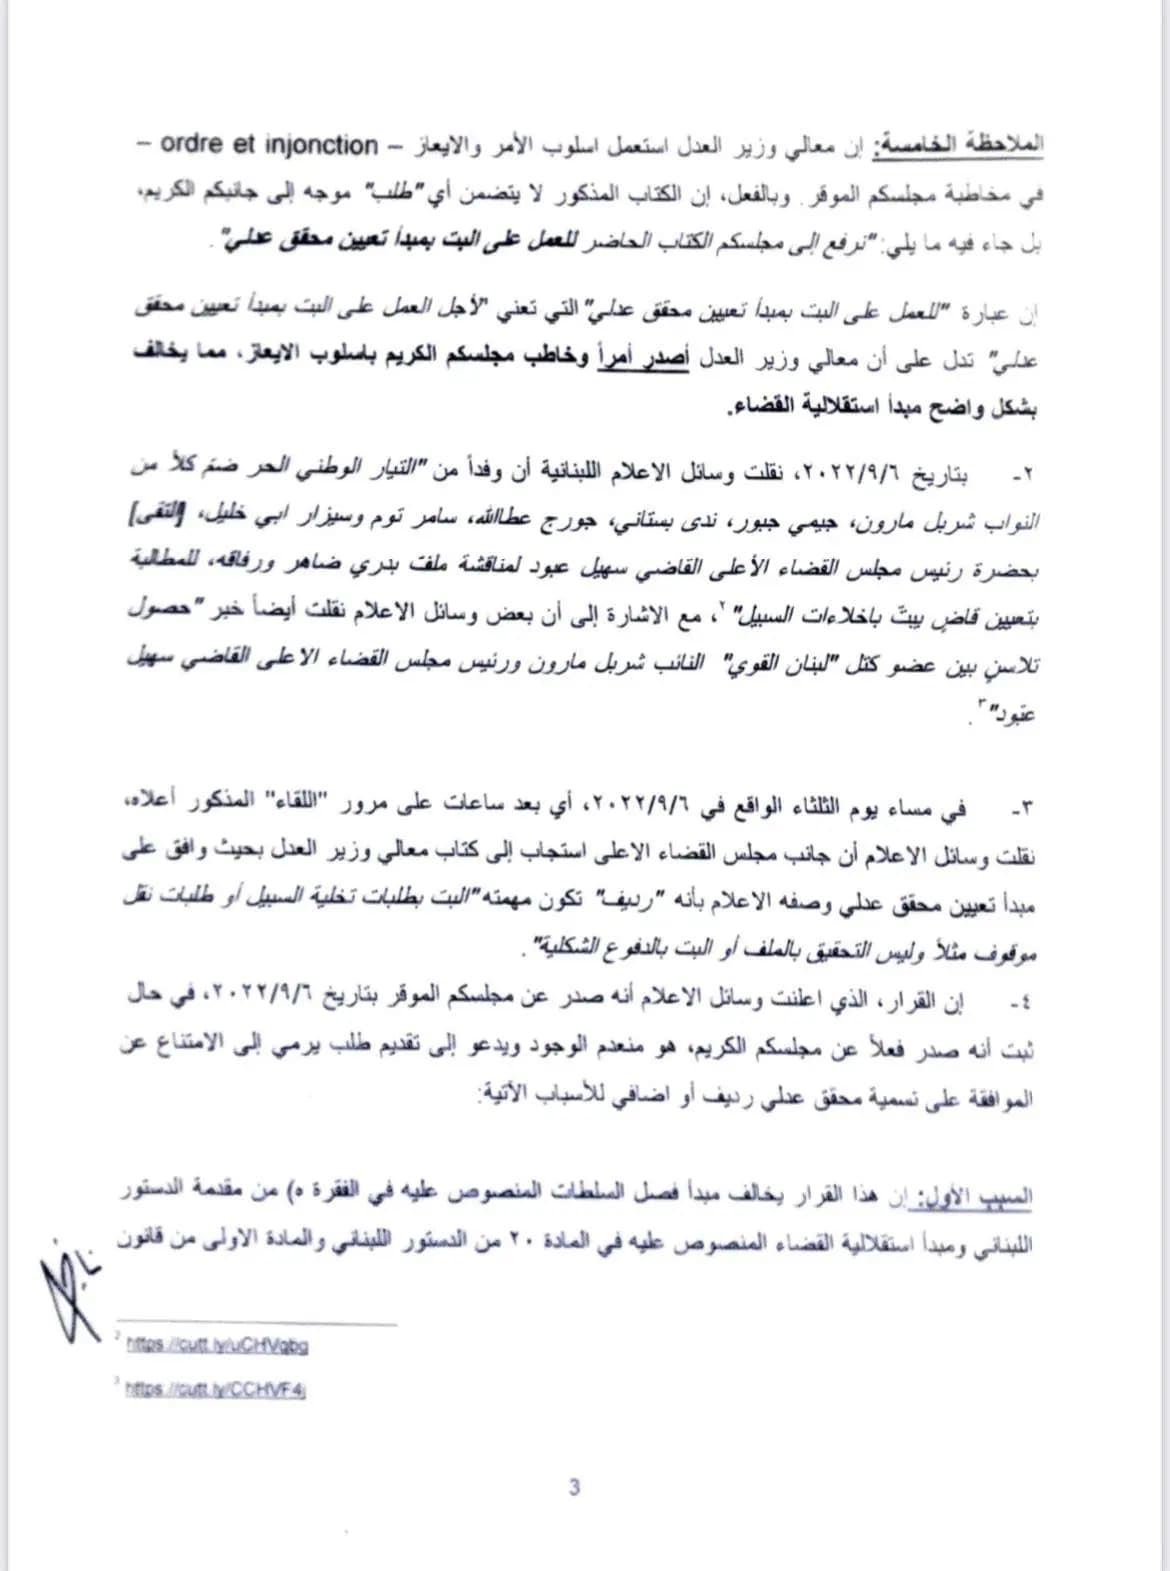 الملاحظة الخامسة: إن معالي وزير العدل استعمل اسلوب الأمر والايعاز – ordre et injonction –
في مخاطبة مجلسكم الموقر. وبالفعل، إن الكتاب المذكور لا يتضمن أي "طلب" موجه إلى جانبكم الكريم،
بل جاء فيه ما يلي: "نرفع إلى مجلسكم الكتاب الحاضر للعمل على البت بمبدأ تعيين محقق عدلي".
إن عبارة "للعمل على البت بمبدأ تعيين محقق عدلي" التي تعني "لأجل العمل على البت بمبدأ تعيين محقق
عدلي" تدل على أن معالي وزير العدل أصدر أمراً وخاطب مجلسكم الكريم باسلوب الايعاز، مما يخالف
بشكل واضح مبدأ استقلالية القضاء.
٢- بتاريخ ٢٠٢٢/٩/٦، نقلت وسائل الاعلام اللبنانية أن وفداً من "التيار الوطني الحر ضمّ كلاً من
النواب شربل مارون، جيمي جبور، ندى بستاني، جورج عطاالله، سامر توم وسيزار ابي خليل، [التقى]
بحضرة رئيس مجلس القضاء الأعلى القاضي سهيل عبود لمناقشة ملفت بدري ضاهر ورفاقه، للمطالبة
بتعيين قاضٍ يبتّ باخلاءات السبيل"٢، مع الاشارة إلى أن بعض وسائل الاعلام نقلت أيضاً خبر "حصول
تلاسنٍ بين عضو كتل "لبنان القوي" النائب شربل مارون ورئيس مجلس القضاء الاعلى القاضي سهيل
عبّود"٣.
٣- في مساء يوم الثلثاء الواقع في ٢٠٢٢/٩/٦، أي بعد ساعات على مرور "اللقاء" المذكور أعلاه،
نقلت وسائل الاعلام أن جانب مجلس القضاء الاعلى استجاب إلى كتاب معالي وزير العدل بحيث وافق على
مبدأ تعيين محقق عدلي وصفه الاعلام بأنه "رديف" تكون مهمته "البت بطلبات تخلية السبيل أو طلبات نقل
موقوف مثلاً وليس التحقيق بالملف أو البت بالدفوع الشكلية".
٤- إن القرار، الذي اعلنت وسائل الاعلام أنه صدر عن مجلسكم الموقر بتاريخ ٢٠٢٢/٩/٦، في حال
ثبت أنه صدر فعلاً عن مجلسكم الكريم، هو منعدم الوجود ويدعو إلى تقديم طلب يرمي إلى الامتناع عن
الموافقة على تسمية محقق عدلي رديف أو اضافي للأسباب الآتية:
السبب الأول: إن هذا القرار يخالف مبدأ فصل السلطات المنصوص عليه في الفقرة ه) من مقدمة الدستور
اللبناني ومبدأ استقلالية القضاء المنصوص عليه في المادة ٢٠ من الدستور اللبناني والمادة الاولى من قانون
2 https://cutt.ly/uCHVqbg
3 https://cutt.ly/CCHVF4j
3